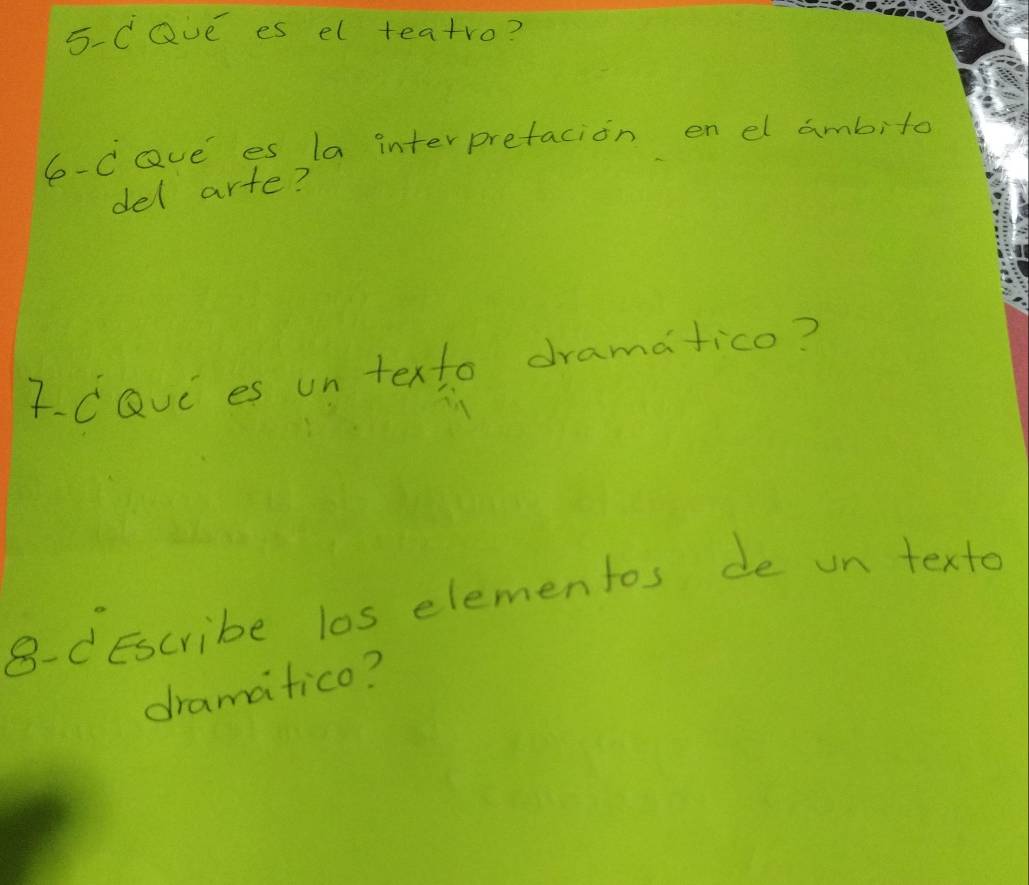 5-¿Qué es el teatro?
6-¿Qué es la interpretación en el ámbito
del arte?
7-¿Qué es un texto dramático?
8-¿Escribe los elementos de un texto
dramático?